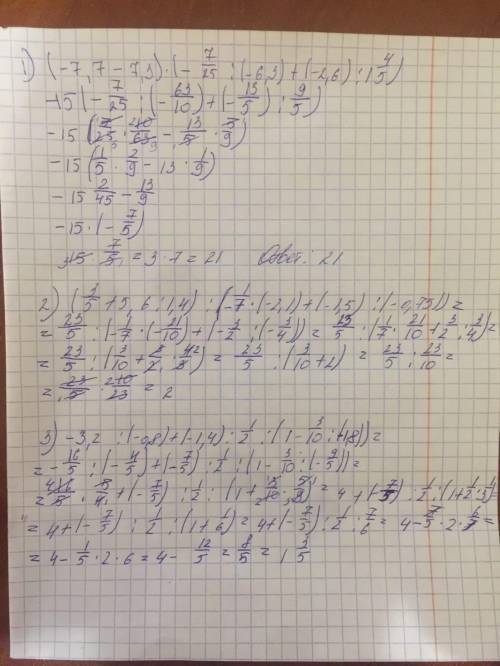 1) (-7,7 - 7,3) · (- 7/25 : (-6,3) + (-2,6) : 1 4/5)
-15 (- 7/25 : (- 63/10) + (- 13/5) : 9/5)
-15 (7/25 · 10/63 - 13/5 · 5/9)
-15 (1/5 · 2/9 - 13 · 1/9)
-15 2/45 - 13/9
-15 · (- 7/5)
15 · 7/5 = 3 · 7 = 21 Ответ: 21
2) (3/5 + 5,6 : 1,4) : (- 1/7 · (-2,1) + (-1,5) : (-0,75)) =
= 23/5 : (- 1/7 · (- 21/10) + (- 3/2 : (- 3/4)) = 23/5 : (1/7 · 21/10 + 3/2 : 3/4) =
= 23/5 : (3/10 + 3/2 · 4/3) = 23/5 : (3/10 + 2) = 23/5 : 23/10 =
= 23/5 · 10/23 = 2
3) -3,2 : (-0,8) + (-1,4) : 1/2 : (1 - 3/10 : (-1,8)) =
= - 16/5 : (- 4/5) + (- 7/5) : 1/2 : (1 - 3/10 : (- 9/5)) =
= 16/5 · 5/4 + (- 7/5) : 1/2 : (1 + 3/10 · 5/9) = 4 + (- 7/5) : 1/2 : (1 + 1/2 · 1/3) =
= 4 + (- 7/5) : 1/2 : (1 + 1/6) = 4 + (- 7/5) : 1/2 : 7/6 = 4 - 7/5 · 2 · 6/7 =
= 4 - 1/5 · 2 · 6 = 4 - 12/5 = 8/5 = 1 3/5